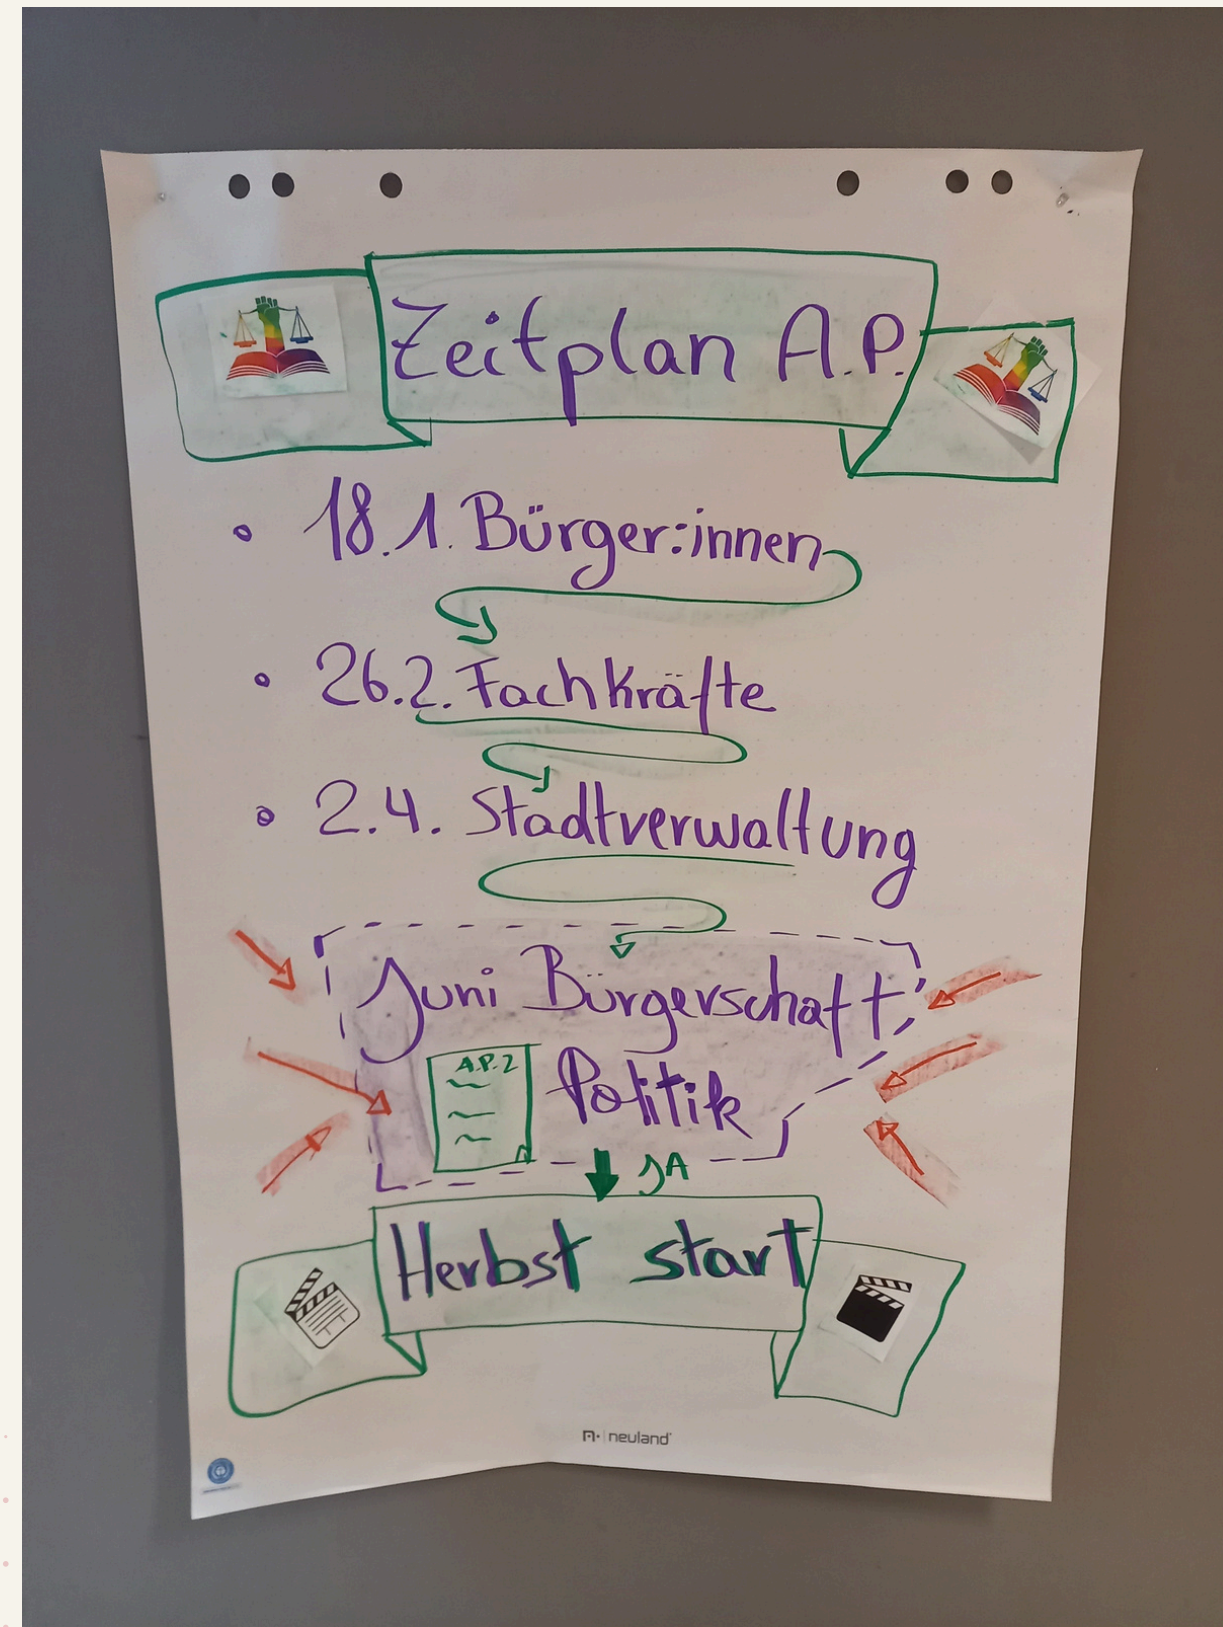 Zeitplan A.P.
18.1. Bürger:innen
26.2. Fachkräfte
2.4. Stadtverwaltung
Juni Bürgerschaft
A.P.2
Politik
JA
Herbst start
neuland